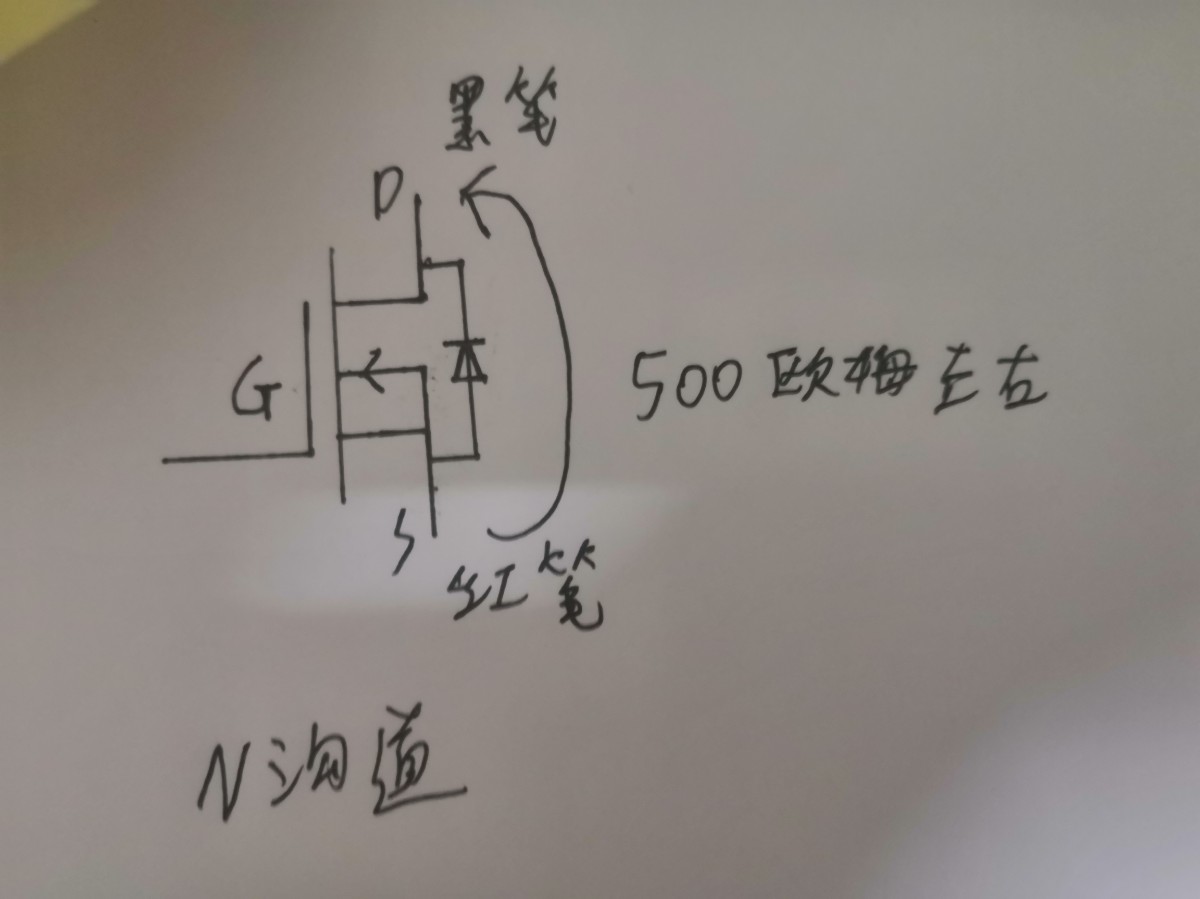 黑笔
D
G
500欧姆左右
S
红笔
N沟道